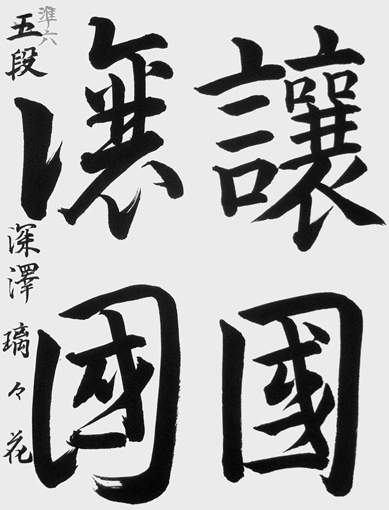 讓國
讓國
準六
五段 深澤璃々花